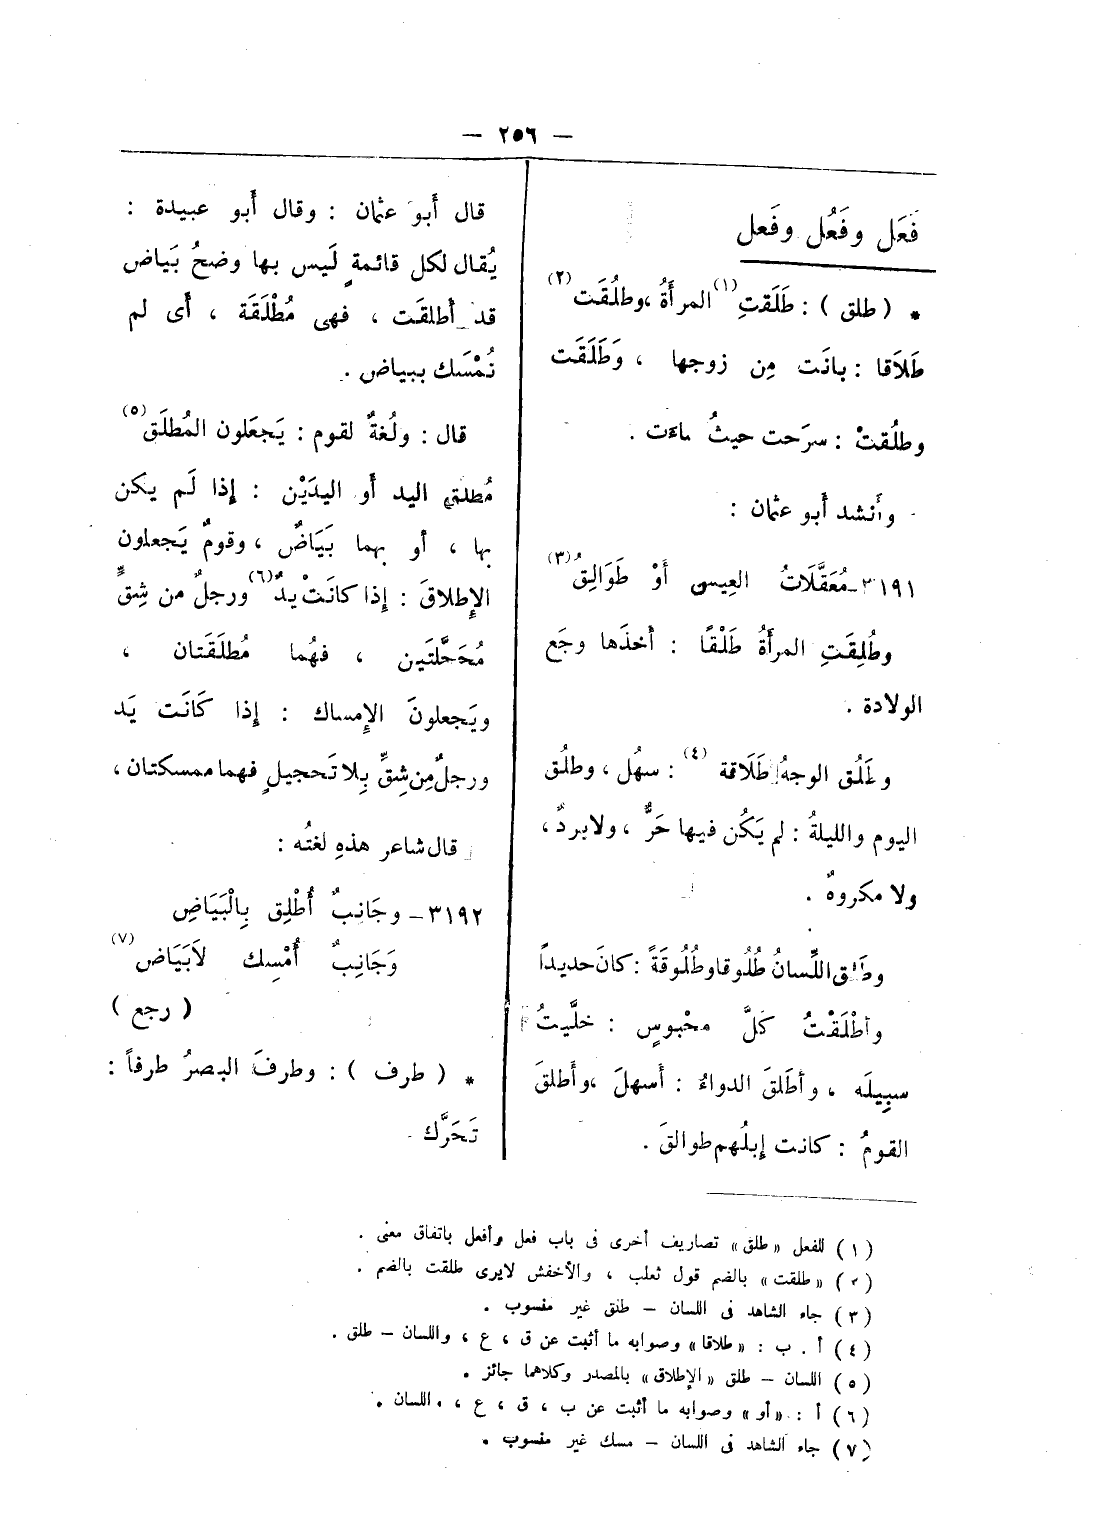 — ٢٥٦ —
فَعَل وفَعُل وفَعل
* ( طلق ) : طَلَقتِ(١) المرأَةُ ، وطلُقَت(٢)
طَلَاقا : بانَت مِن زوجها ، وَطَلَقَت
وطلُقتْ : سرَحت حيثُ ماءَت .
وأَنشد أَبو عثمان :
٣١٩١ـ مُعَقَّلَاتُ العِيسِ أَوْ طَوَالِقُ(٣)
وطُلِقَتِ المرأَةُ طَلْقًا : أَخذَها وجَع
الولادة .
وطَلُق الوجهُ طَلَاقة (٤) : سهُل ، وطلُق
اليوم والليلةُ : لم يَكُن فيها حَرٌّ ، ولا بردٌ ،
ولا مكروهٌ .
وطَلق اللِّسانُ طُلُوقا وطُلُوقَةً : كانَ حديداً
وأَطْلَقْتُ كلَّ محْبوسٍ : خلَّيتُ
سبِيلَه ، وأَطَلقَ الدواءُ : أَسهلَ ، وأَطلقَ
القومُ : كانت إِبلُهم طوالقَ .
قال أَبو عثمان : وقال أَبو عبيدة :
يُقال لكل قائمةٍ لَيس بها وضحُ بَياض
قد أَطلقَت ، فهى مُطْلَقَة ، أَى لم
تُمْسَك ببياض .
قال : ولُغةٌ لقوم : يَجعَلون المُطلَق(٥)
مُطلقِ اليد أَو اليدَيْن : إِذا لَم يكن
بها ، أو بهما بَيَاضٌ ، وقومٌ يَجعلون
الإِطلاقَ : إِذا كانَتْ يدٌ(٦) ورجلٌ من شِقٍّ
مُحَجَّلتَين ، فهُما مُطلَقَتان ،
ويَجعلونَ الإِمساك : إِذا كَانَت يَد
ورجلٌ مِن شِقٍّ بِلا تَحجيلٍ فهما ممسكتان ،
قال شاعر هذهِ لغتُه :
٣١٩٢ـ وجَانِبٌ أُطْلِق بِالْبَيَاضِ
وَجَانِبٌ أُمْسِك لاَبَيَاض(٧)
( رجع )
* ( طرف ) : وطرفَ البصرُ طرفاً :
تَحَرَّك .
(١) للفعل «طلق» تصاريف أخرى فى باب فعل وأفعل باتفاق معنى .
(٢) «طلقت» بالضم قول ثعلب ، والأخفش لايرى طلقت بالضم .
(٣) جاء الشاهد فى اللسان – طلق غير منسوب .
(٤) أ . ب : «طلاقا» وصوابه ما أثبت عن ق ، ع ، واللسان – طلق .
(٥) اللسان – طلق «الإطلاق» بالمصدر وكلاهما جائز .
(٦) أ : «أو» وصوابه ما أثبت عن ب ، ق ، ع ، اللسان .
(٧) جاء الشاهد فى اللسان – مسك غير منسوب .